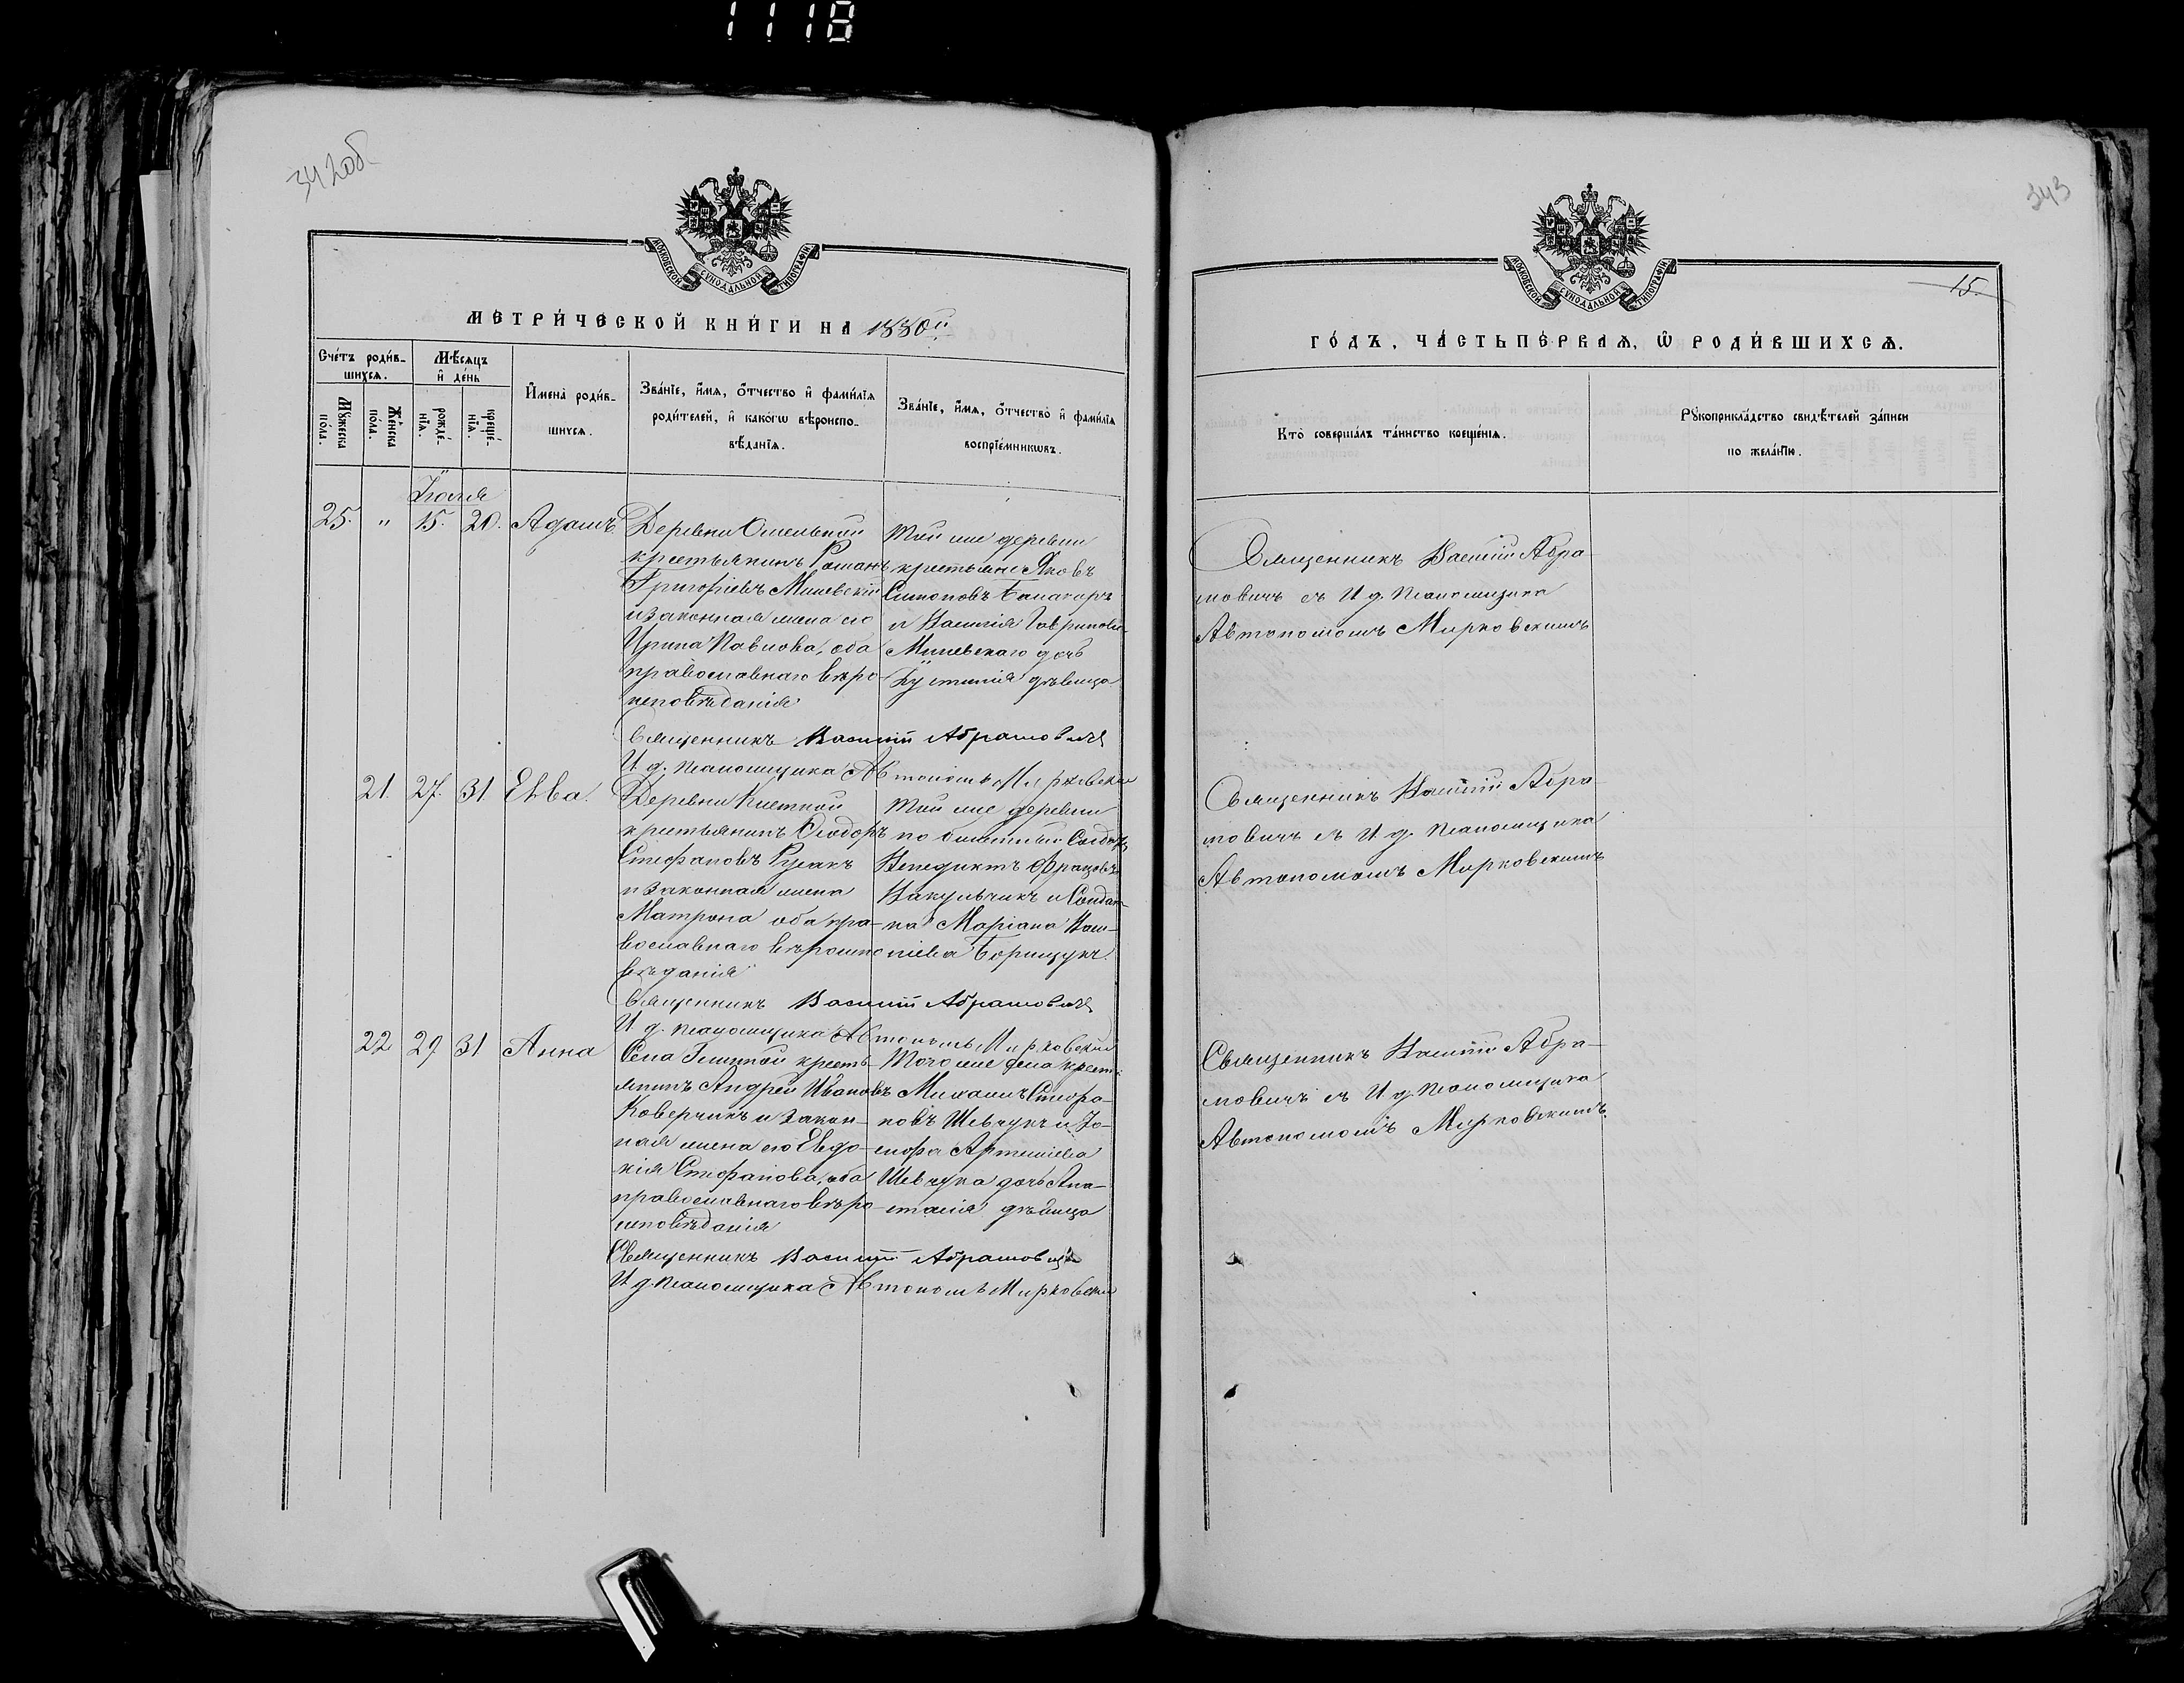 1118
342об
343
15.
МОСКОВСКОЙ СѴНОДАЛЬНОЙ ТИПОГРАФІИ
МОСКОВСКОЙ СѴНОДАЛЬНОЙ ТИПОГРАФІИ
МЕТРИ́ЧЕСКОЙ КНИ́ГИ НА 1880й
ГО́ДЪ, ЧА́СТЬ ПЕ́РВАЯ, Ѡ РОДИ́ВШИХСЯ.
Сче́тъ роди́в-
шихся.
Мꙋ́жеска по́ла.
Же́нска по́ла.
Мѣ́сяцъ
и҆ де́нь
рожде́-
нїѧ.
креще́-
нїѧ.
И҆мена̀ роди́в-
шихся.
Зва́нїе, и҆́мя, ѻ҆́тчество и҆ фами́лїѧ
роди́телей, и҆ како́гѡ вѣроиспо-
вѣ́данїѧ.
Зва́нїе, и҆́мя, ѻ҆́тчество и҆ фами́лїѧ
воспрїе́мникѡвъ.
Кто̀ соверша́лъ та́инство креще́нїѧ.
Рꙋкоприкла́дство свидѣ́телей за́писи
по жела́нїю.
Іюля
25. " 15. 20. Адамъ
Деревни Омельной
крестьянинъ Романъ
Григоріевъ Милевскій
и законная жена его
Ирина Павлова, оба
православнаго вѣро-
исповѣданія
Той же деревни
крестьяне Яковъ
Симоновъ
и Василія
Милевскаго дочь
Іустинія дѣвица
Священникъ Василій Абрамовичъ
И. д. псаломщика Автономъ Мирковскій
Священникъ Василій Абра-
мовичъ съ И. д. псаломщика
Автономомъ Мирковскимъ
21. 27. 31. Евва.
Деревни Клетной
крестьянинъ Ѳеодоръ
Стефановъ Русакъ
и законная жена
Матрона оба пра-
вославнаго вѣроиспо-
вѣданія
Той же деревни
по билетный Солдатъ
Венедиктъ Францовъ
Вакульчикъ и Солдат-
ка Маріана Васи-
ліева Борищукъ.
Священникъ Василій Абрамовичъ
И. д. псаломщика Автономъ Мирковскій
Священникъ Василій Абра-
мовичъ съ И. д. псаломщика
Автономомъ Мирковскимъ
22 29 31 Анна
Села кресть-
янинъ Андрей Ивановъ
Коверчикъ и закон-
ная жена его Евдо-
кія Стефанова, оба
православнаго вѣро
исповѣданія
Того же села крест.
Михаилъ Стефа-
новъ Шевчукъ и Іо-
сифа Артеміева
Шевчука дочь Ана-
стасія дѣвица
Священникъ Василій Абрамовичъ
И. д. псаломщика Автономъ Мирковскій
Священникъ Василій Абра-
мовичъ съ И. д. псаломщика
Автономомъ Мирковскимъ.